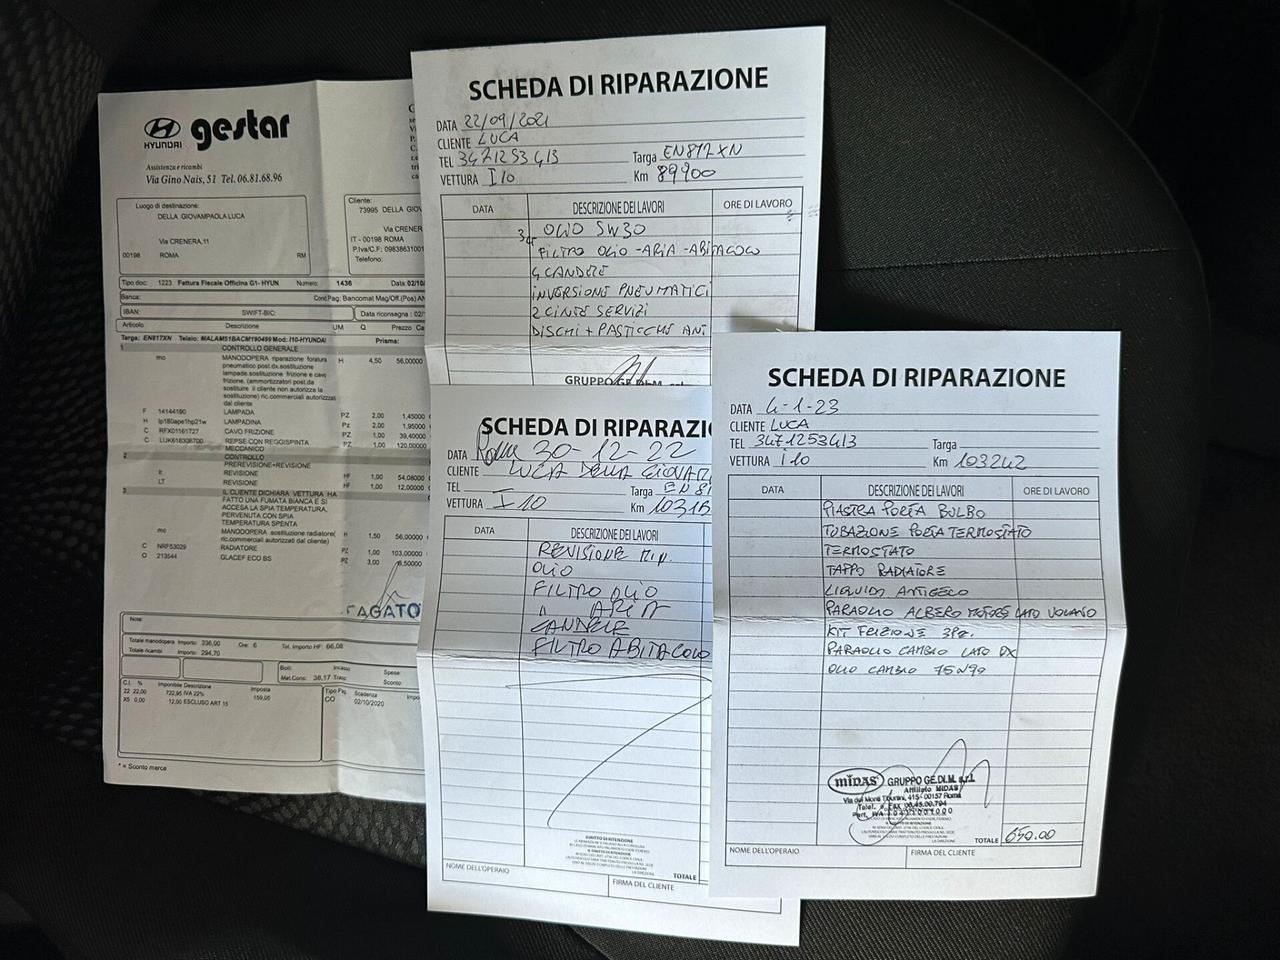 HYUNDAI
gestar
Assistenza e ricambi
Via Gino Nais, 51 Tel. 06.81.68.96
Luogo di destinazione:
DELLA GIOVAMPAOLA LUCA
Via CRENERA,11
00198 ROMA RM
Cliente:
73995 DELLA GIOV
Via CRENER
IT - 00198 ROMA
P.Iva/C.F: 09838631001
Telefono:
Tipo doc: 1223 Fattura Fiscale Officina G1- HYUN Numero: 1436 Data: 02/10/
Banca: Cont Pag: Bancomat Mag/Off.(Pos) AN
IBAN: SWIFT-BIC: Data riconsegna : 02/
Articolo Descrizione UM Q Prezzo Ca
Targa: EN817XN Telaio: MALAM51BACM190499 Mod: I10-HYUNDAI Prisma:
1 CONTROLLO GENERALE
mo MANODOPERA riparazione foratura H 4,50 56,00000
pneumatico post.dx.sostituzione
lampade.sostituzione frizione e cavo
frizione. (ammortizzatori post.da
sostituire il cliente non autorizza la
sostituzione) ric.commerciali autorizzati
dal cliente
F 14144190 LAMPADA PZ 2,00 1,45000
H lp180ape1hp21w LAMPADINA Pz 2,00 1,95000
C RFX01161727 CAVO FRIZIONE PZ 1,00 39,40000
C LUK618308700 REPSE CON REGGISPINTA PZ 1,00 120,00000
MECCANICO
2 CONTROLLO
PREREVISIONE+REVISIONE
lt REVISIONE HF 1,00 54,08000
LT REVISIONE HF 1,00 12,00000
3 IL CLIENTE DICHIARA VETTURA HA
FATTO UNA FUMATA BIANCA E SI
ACCESA LA SPIA TEMPERATURA,
PERVENUTA CON SPIA
TEMPERATURA SPENTA
mo MANODOPERA sostituzione radiatore( H 1,50 56,00000
ric.commerciali autorizzati dal cliente)
C NRF53029 RADIATORE PZ 1,00 103,00000
O 213544 GLACEF ECO BS PZ 3,00 8,50000
PAGATO
Note:
Totale manodopera Importo: 336,00 Ore: 6 Tot. Importo HF: 66,08
Totale ricambi Importo: 294,70
Bolli: Incasso Spese
Mat.Cons: 36,17 Trasp Sconto
C.I. % Imponibile Descrizione Imposta
22 22,00 722,95 IVA 22% 159,05
X5 0,00 12,00 ESCLUSO ART 15
Tipo Pag. Scadenza Impo
CO 02/10/2020
* = Sconto merce
SCHEDA DI RIPARAZIONE
DATA 22/09/2021
CLIENTE LUCA
TEL 3471253413 Targa EN817XN
VETTURA I10 Km 89900
DATA DESCRIZIONE DEI LAVORI ORE DI LAVORO
OLIO 5W30
FILTRO OLIO -ARIA -ABITACOLO
4 CANDELE
INVERSIONE PNEUMATICI
2 CINTE SERVIZI
DISCHI + PASTICCHE ANT
GRUPPO GE.DI.M.
SCHEDA DI RIPARAZI
DATA Roma 30-12-22
CLIENTE LUCA DELLA GIOVAM
TEL Targa EN81
VETTURA I10 Km 10316
DATA DESCRIZIONE DEI LAVORI
REVISIONE M.P.
OLIO
FILTRO OLIO
" ARIA
CANDELE
FILTRO ABITACOLO
DIRITTO DI RITENZIONE
LA DIREZIONE
TOTALE
NOME DELL'OPERAIO
FIRMA DEL CLIENTE
SCHEDA DI RIPARAZIONE
DATA 4-1-23
CLIENTE LUCA
TEL 3471253413 Targa
VETTURA i10 Km 103242
DATA DESCRIZIONE DEI LAVORI ORE DI LAVORO
PIASTRA PORTA BULBO
TUBAZIONE PORTA TERMOSTATO
TERMOSTATO
TAPPO RADIATORE
LIQUIDO ANTIGELO
PARAOLIO ALBERO MOTORE LATO VOLANO
KIT FRIZIONE 3PZ.
PARAOLIO CAMBIO LATO DX
OLIO CAMBIO 75W90
MIDAS GRUPPO GE.DI.M. s.r.l.
Affiliato MIDAS
Via dei Monti Tiburtini, 415 - 00157 Roma
LA DIREZIONE
TOTALE 650.00
NOME DELL'OPERAIO
FIRMA DEL CLIENTE